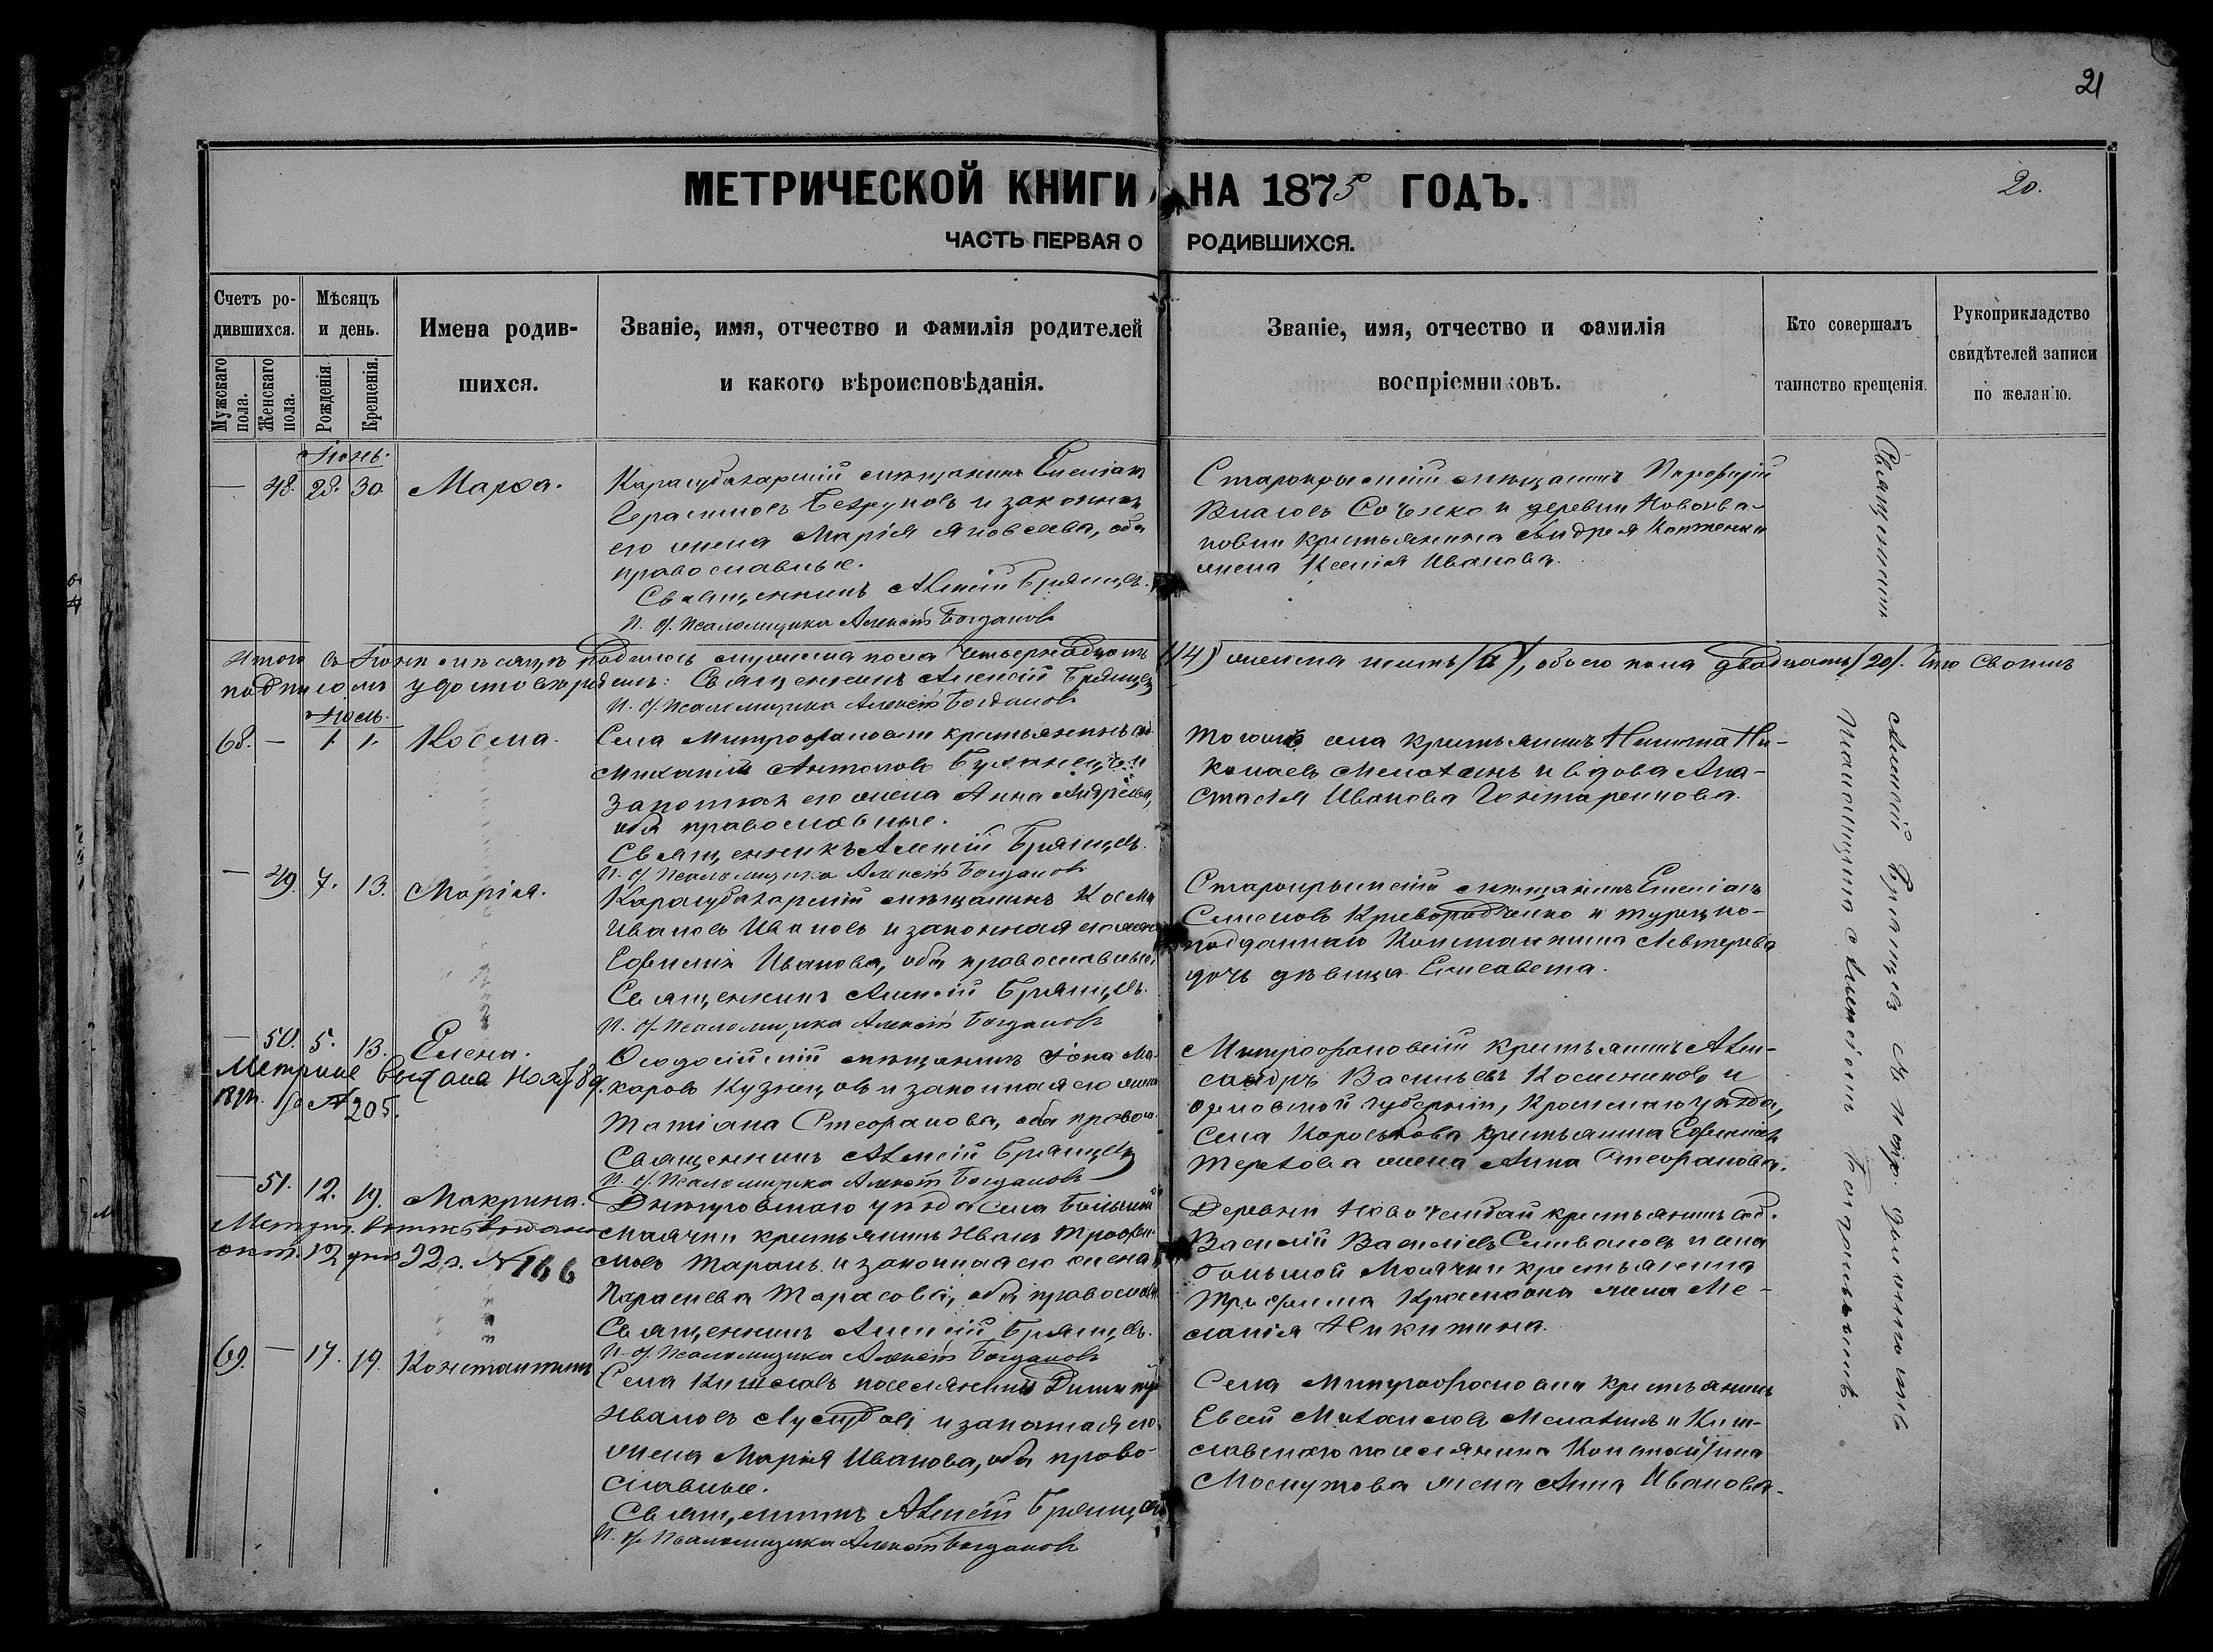 21
МЕТРИЧЕСКОЙ КНИГИ НА 1875 ГОДЪ.
20.
ЧАСТЬ ПЕРВАЯ О РОДИВШИХСЯ.
Счетъ ро-
дившихся.
Мужскаго пола.
Женскаго пола.
Мѣсяцъ
и день.
Рожденія.
Крещенія.
Имена родив-
шихся.
Званіе, имя, отчество и фамилія родителей
и какого вѣроисповѣданія.
Званіе, имя, отчество и фамилія
воспріемниковъ.
Кто совершалъ
таинство крещенія.
Рукоприкладство
свидѣтелей записи
по желанію.
Іюнь.
— 48. 28. 30. Марѳа.
Карасубазарскій мѣщанинъ Емеліанъ
Герасимовъ и законная
его жена Марія Яковлева, оба
православные.
Священникъ Алексій Брянцевъ.
И. д. Псаломщика Алексѣй Богдановъ
Старокрымскій мѣщанинъ Порфирій
Власовъ и деревни Новоива-
новки крестьянина Андрея
жена Ксенія Иванова.
Итого въ Іюнѣ мѣсяцѣ родилось мужеска пола четырнадцать (14) женска шесть /6/, обоего пола двадцать /20/. Что своимъ
подписомъ удостовѣряемъ: Священникъ Алексій Брянцевъ
И. д. Псаломщика Алексѣй Богдановъ
Іюль.
68. — 1. 1. Косма.
Села Митрофановки крестьянинъ соб.
Михаилъ Антоновъ и
законная его жена Анна Андреева,
оба православные.
Священникъ Алексій Брянцевъ.
И. д. Псаломщика Алексѣй Богдановъ
Тогожъ села крестьянинъ Никита Ни-
колаевъ Мелахинъ и вдова Ана-
стасія Иванова
— 49. 7. 13. Марія.
Карасубазарскій мѣщанинъ Косма
Ивановъ Ивановъ и законная его жена
Евфимія Иванова, оба православные.
Священникъ Алексій Брянцевъ.
И. д. Псаломщика Алексѣй Богдановъ
Старокрымскій мѣщанинъ Емеліанъ
Семеновъ и турецко-
подданнаго Константина Левтерова
дочь дѣвица Елисавета.
— 50. 5. 13. Елена.
Метрика выдана
№ 205.
Ѳеодосійскій мѣщанинъ Іона Ма-
каровъ Кузнецовъ и законная его жена
Татіана Стефанова, оба правос.
Священникъ Алексій Брянцевъ
И. д. Псаломщика Алексѣй Богдановъ
Митрофановскій крестьянинъ Алек-
сандръ Васильевъ и
Орловской губерніи, Кромскаго уѣзда,
села крестьянина Евфимія
Терехова жена Анна Стефанова.
— 51. 12. 19. Макрина.
Метрич. выпись выдана
окт. 12 дня 92 г. № 166
Днѣпровскаго уѣзда села Большой
Маячки крестьянинъ Иванъ Трофи-
мовъ Таранъ и законная его жена
Параскева Тарасова, оба православ.
Священникъ Алексій Брянцевъ.
И. д. Псаломщика Алексѣй Богдановъ
Деревни крестьянинъ соб.
Василій Василіевъ Селивановъ и села
Большой Маячки крестьянина
Трофима жена Ме-
ланія Никитина.
69. — 17. 19. Константинъ
Села Кишлавъ поселянинъ Димитрій
Ивановъ и законная его
жена Марія Иванова, оба право-
славные.
Священникъ Алексій Брянцевъ
И. д. Псаломщика Алексѣй Богдановъ
Села Митрофановки крестьянинъ
Евсей Михаиловъ Мелахинъ и Киш-
лавскаго поселянина Константина
жена Анна Иванова.
Священникъ
Алексій Брянцевъ
Псаломщика Алексѣемъ Богдановымъ.